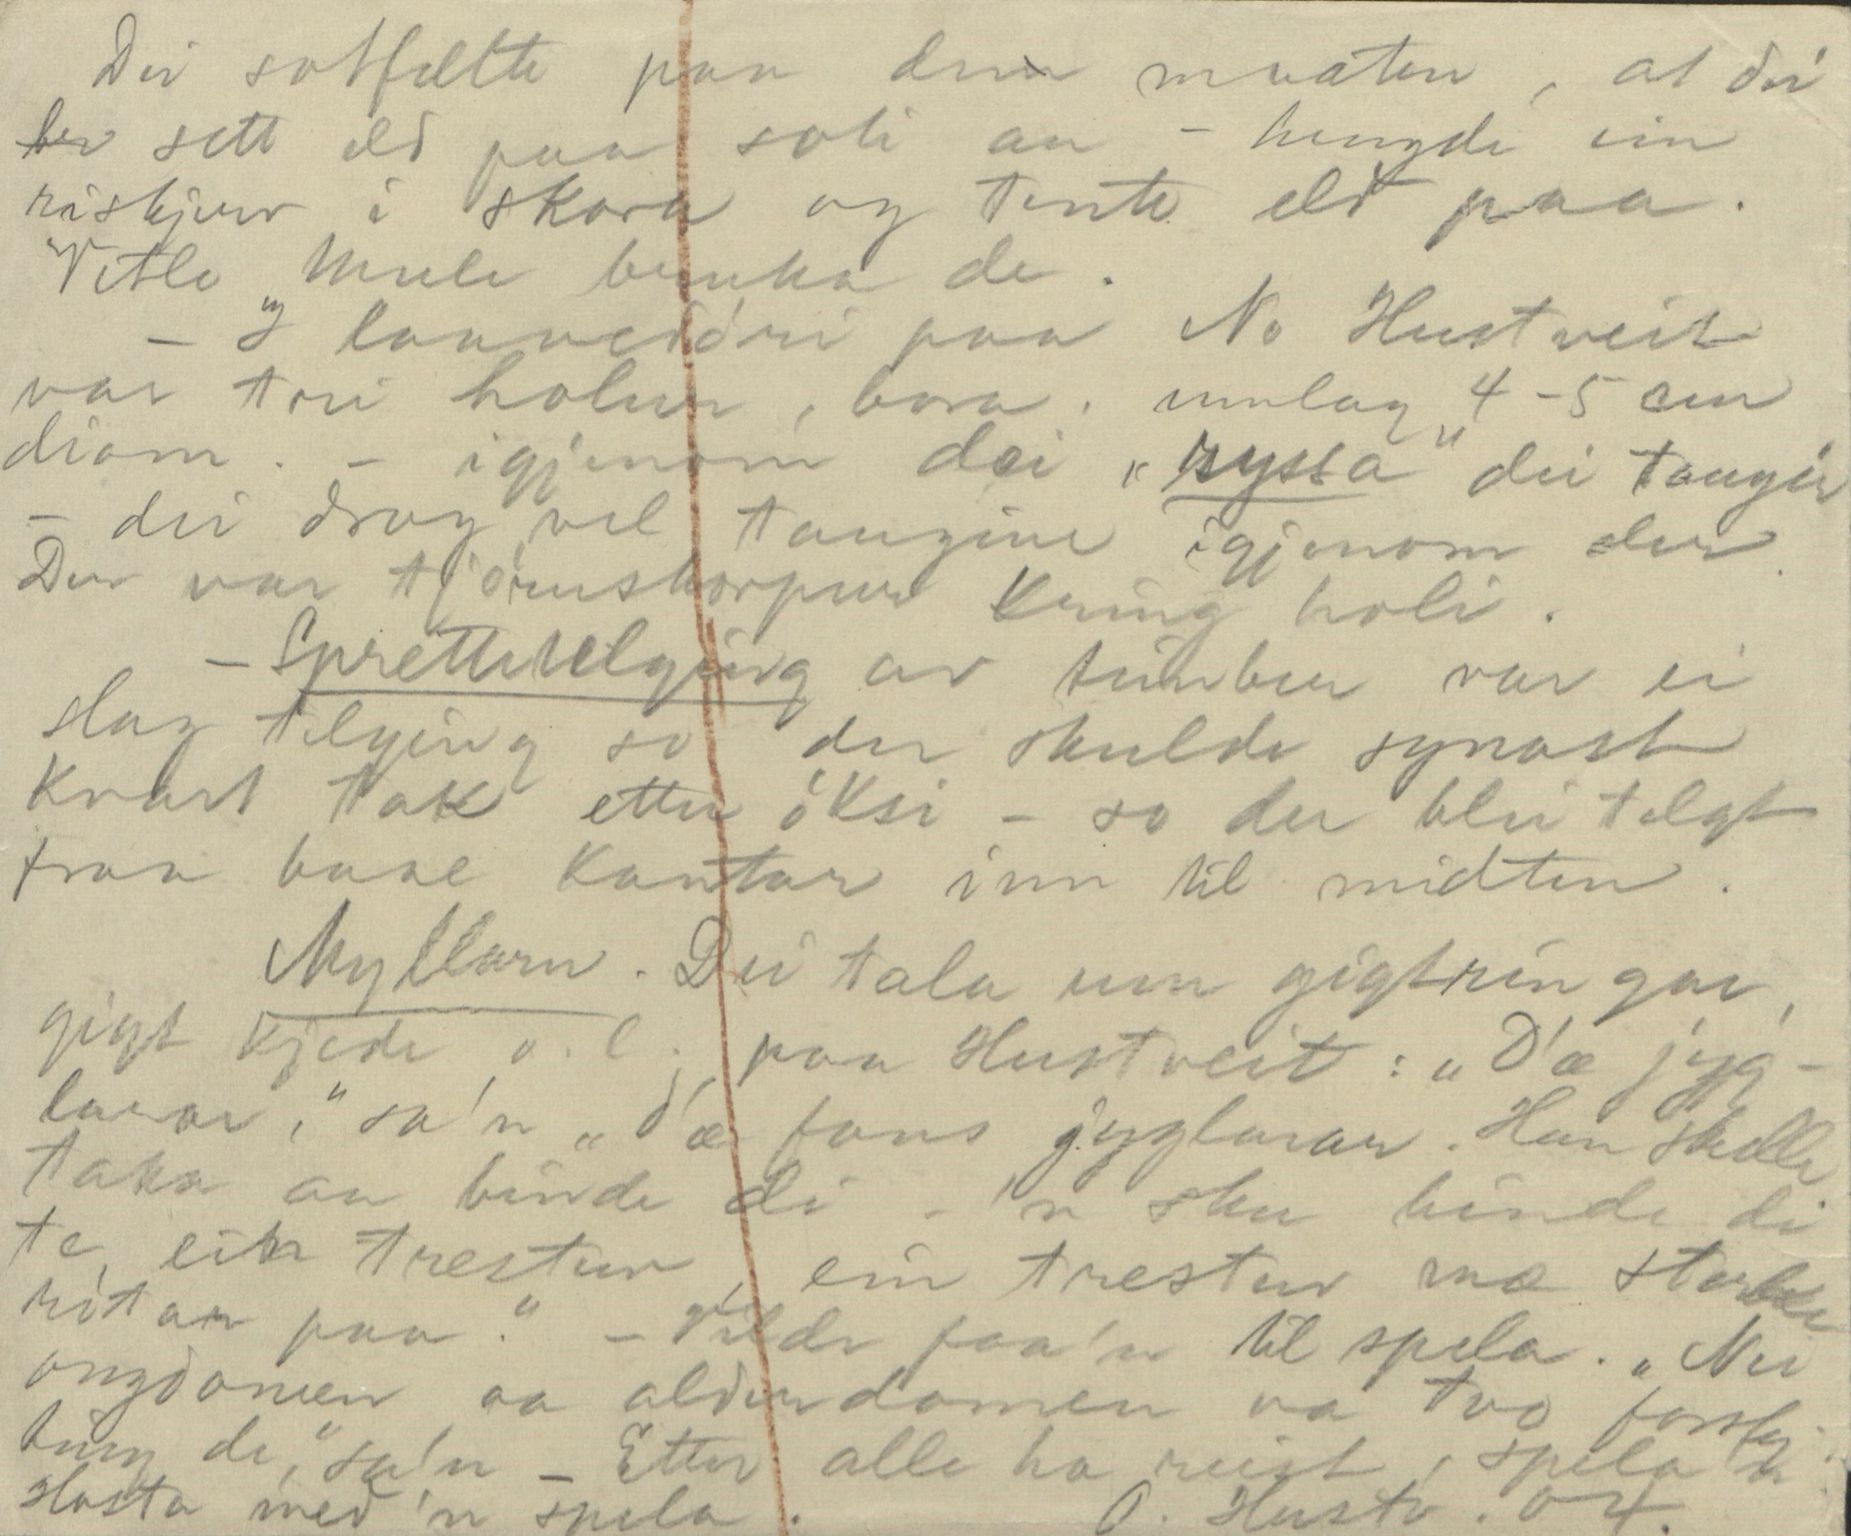 Dei sotfelte paa den maaten, at dei
ber sett eld paa soti au - hengde ein
riskjerv i skora og tente eld paa.
Vetle Mule bruka de.
- I laaveidri paa No Hustveit
var tri holur, bora, umlag 4-5 cm
diam. - igjenom dei "ryssa" dei taugir
- dei drog vel taugine igjenom der.
Der var tjöruskorpur kring holi.
- Sprettetelging av timber var ei
slag telging so der skulde synast
kvart tak etter öksi - so der blei telgt
fraa baae kantar inn til midten.
Myllarn. Dei tala um gigtringar,
gigt kjede o. l. paa Hustveit: "D'æ jyg-
larar," sa'n "d'æ fans jyglarar. Han skulle
taka aa binde di - 'n sku binde di
te ein trestur, ein trestur mæ sterke
rótar paa." - Vilde faa'n til spela. "Nei
ongdomen aa alderdomen va two forskj.
ting de," sa'n - Etter alle ha reist, spela 'n
Hosta med 'n spela. O. Hustv. 04.